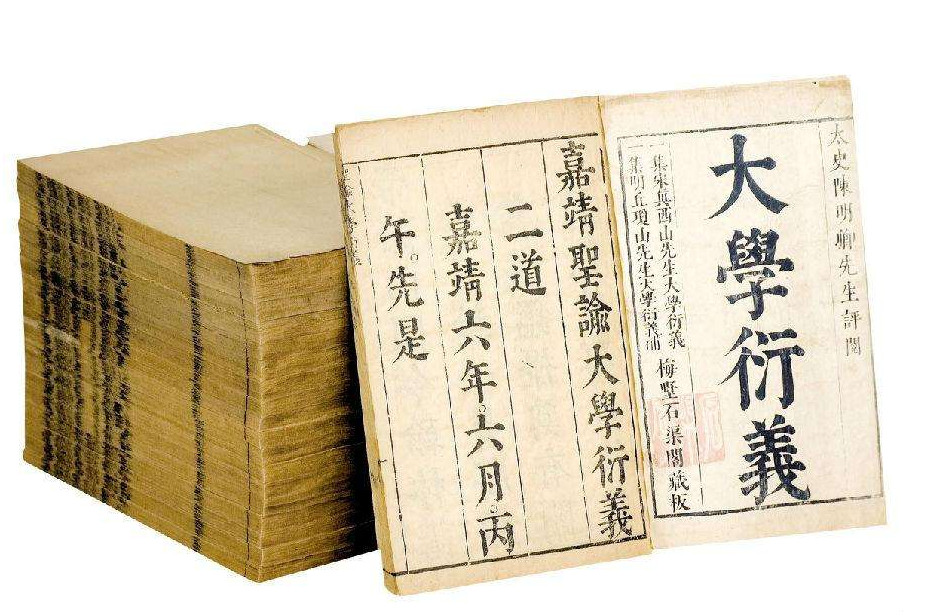 太史陳明卿先生評閱
大學衍義
集宋真西山先生大學衍義
集明丘瓊山先生大學衍義補
梅墅石渠閣藏板
嘉靖聖諭大學衍義
二道
嘉靖六年。六月。丙
午。先是